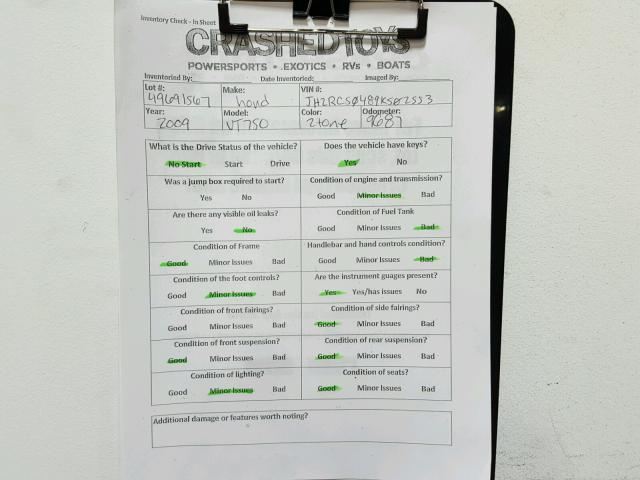 Inventory Check - In Sheet
CRASHEDTOYS
POWERSPORTS • EXOTICS • RVs • BOATS
Inventoried By: Date Inventoried: Imaged By:
Lot #: Make: VIN #:
49691567 hond JH2RCS0489K502553
Year: Model: Color: Odometer:
2009 VT750 2tone 9687
What is the Drive Status of the vehicle? Does the vehicle have keys?
No Start Start Drive Yes No
Was a jump box required to start? Condition of engine and transmission?
Yes No Good Minor Issues Bad
Are there any visible oil leaks? Condition of Fuel Tank
Yes No Good Minor Issues Bad
Condition of Frame Handlebar and hand controls condition?
Good Minor Issues Bad Good Minor Issues Bad
Condition of the foot controls? Are the instrument guages present?
Good Minor Issues Bad Yes Yes/has issues No
Condition of front fairings? Condition of side fairings?
Good Minor Issues Bad Good Minor Issues Bad
Condition of front suspension? Condition of rear suspension?
Good Minor Issues Bad Good Minor Issues Bad
Condition of lighting? Condition of seats?
Good Minor Issues Bad Good Minor Issues Bad
Additional damage or features worth noting?